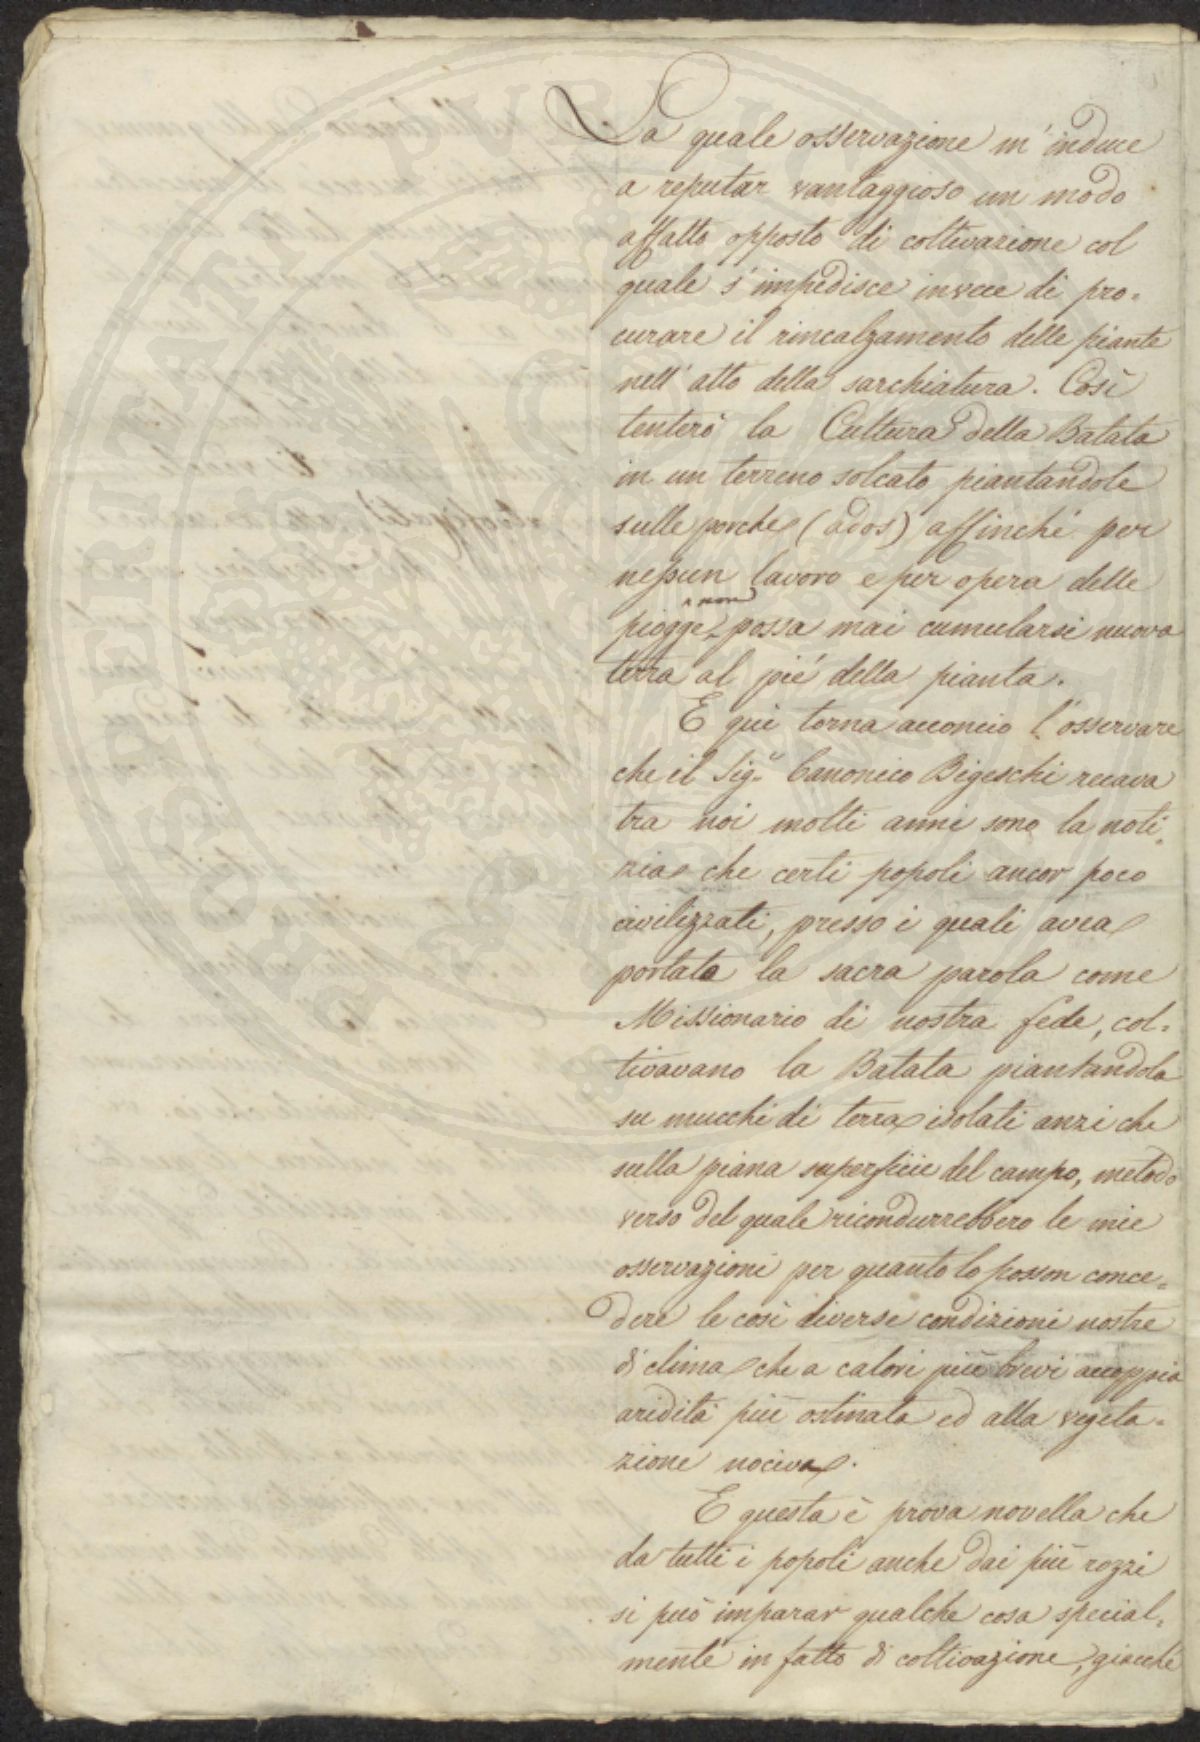 La quale osservazione m'induce
a reputar vantaggioso un modo
affatto opposto di coltivazione col
quale s'impedisce invece di pro-
curare il rincalzamento delle piante
nell'atto della sarchiatura. Così
tenterò la Cultura della Batata
in un terreno solcato piantandole
sulle porche (ados) affinché per
nessun lavoro e per opera delle
piogge non possa mai cumularsi nuova
terra al pié della pianta.
E quì torna acconcio l'osservare
che il Sigr. Canonico Bigeschi recava
tra noi molti anni sono la noti-
zia che certi popoli ancor poco
civilizzati, presso i quali avea
portata la sacra parola come
Missionario di nostra fede, col-
tivavano la Batata piantandola
su mucchi di terra isolati anzi che
sulla piana superficie del campo, metodo
verso del quale ricondurrebbero le mie
osservazioni per quanto lo posson conce-
dere le così diverse condizioni nostre
di clima che a calori più brevi accoppia
aridità più ostinata ed alla vegeta-
zione nociva.
E questa è prova novella che
da tutti i popoli anche dai più rozzi
si può imparar qualche cosa special-
mente in fatto di coltivazione, giacché